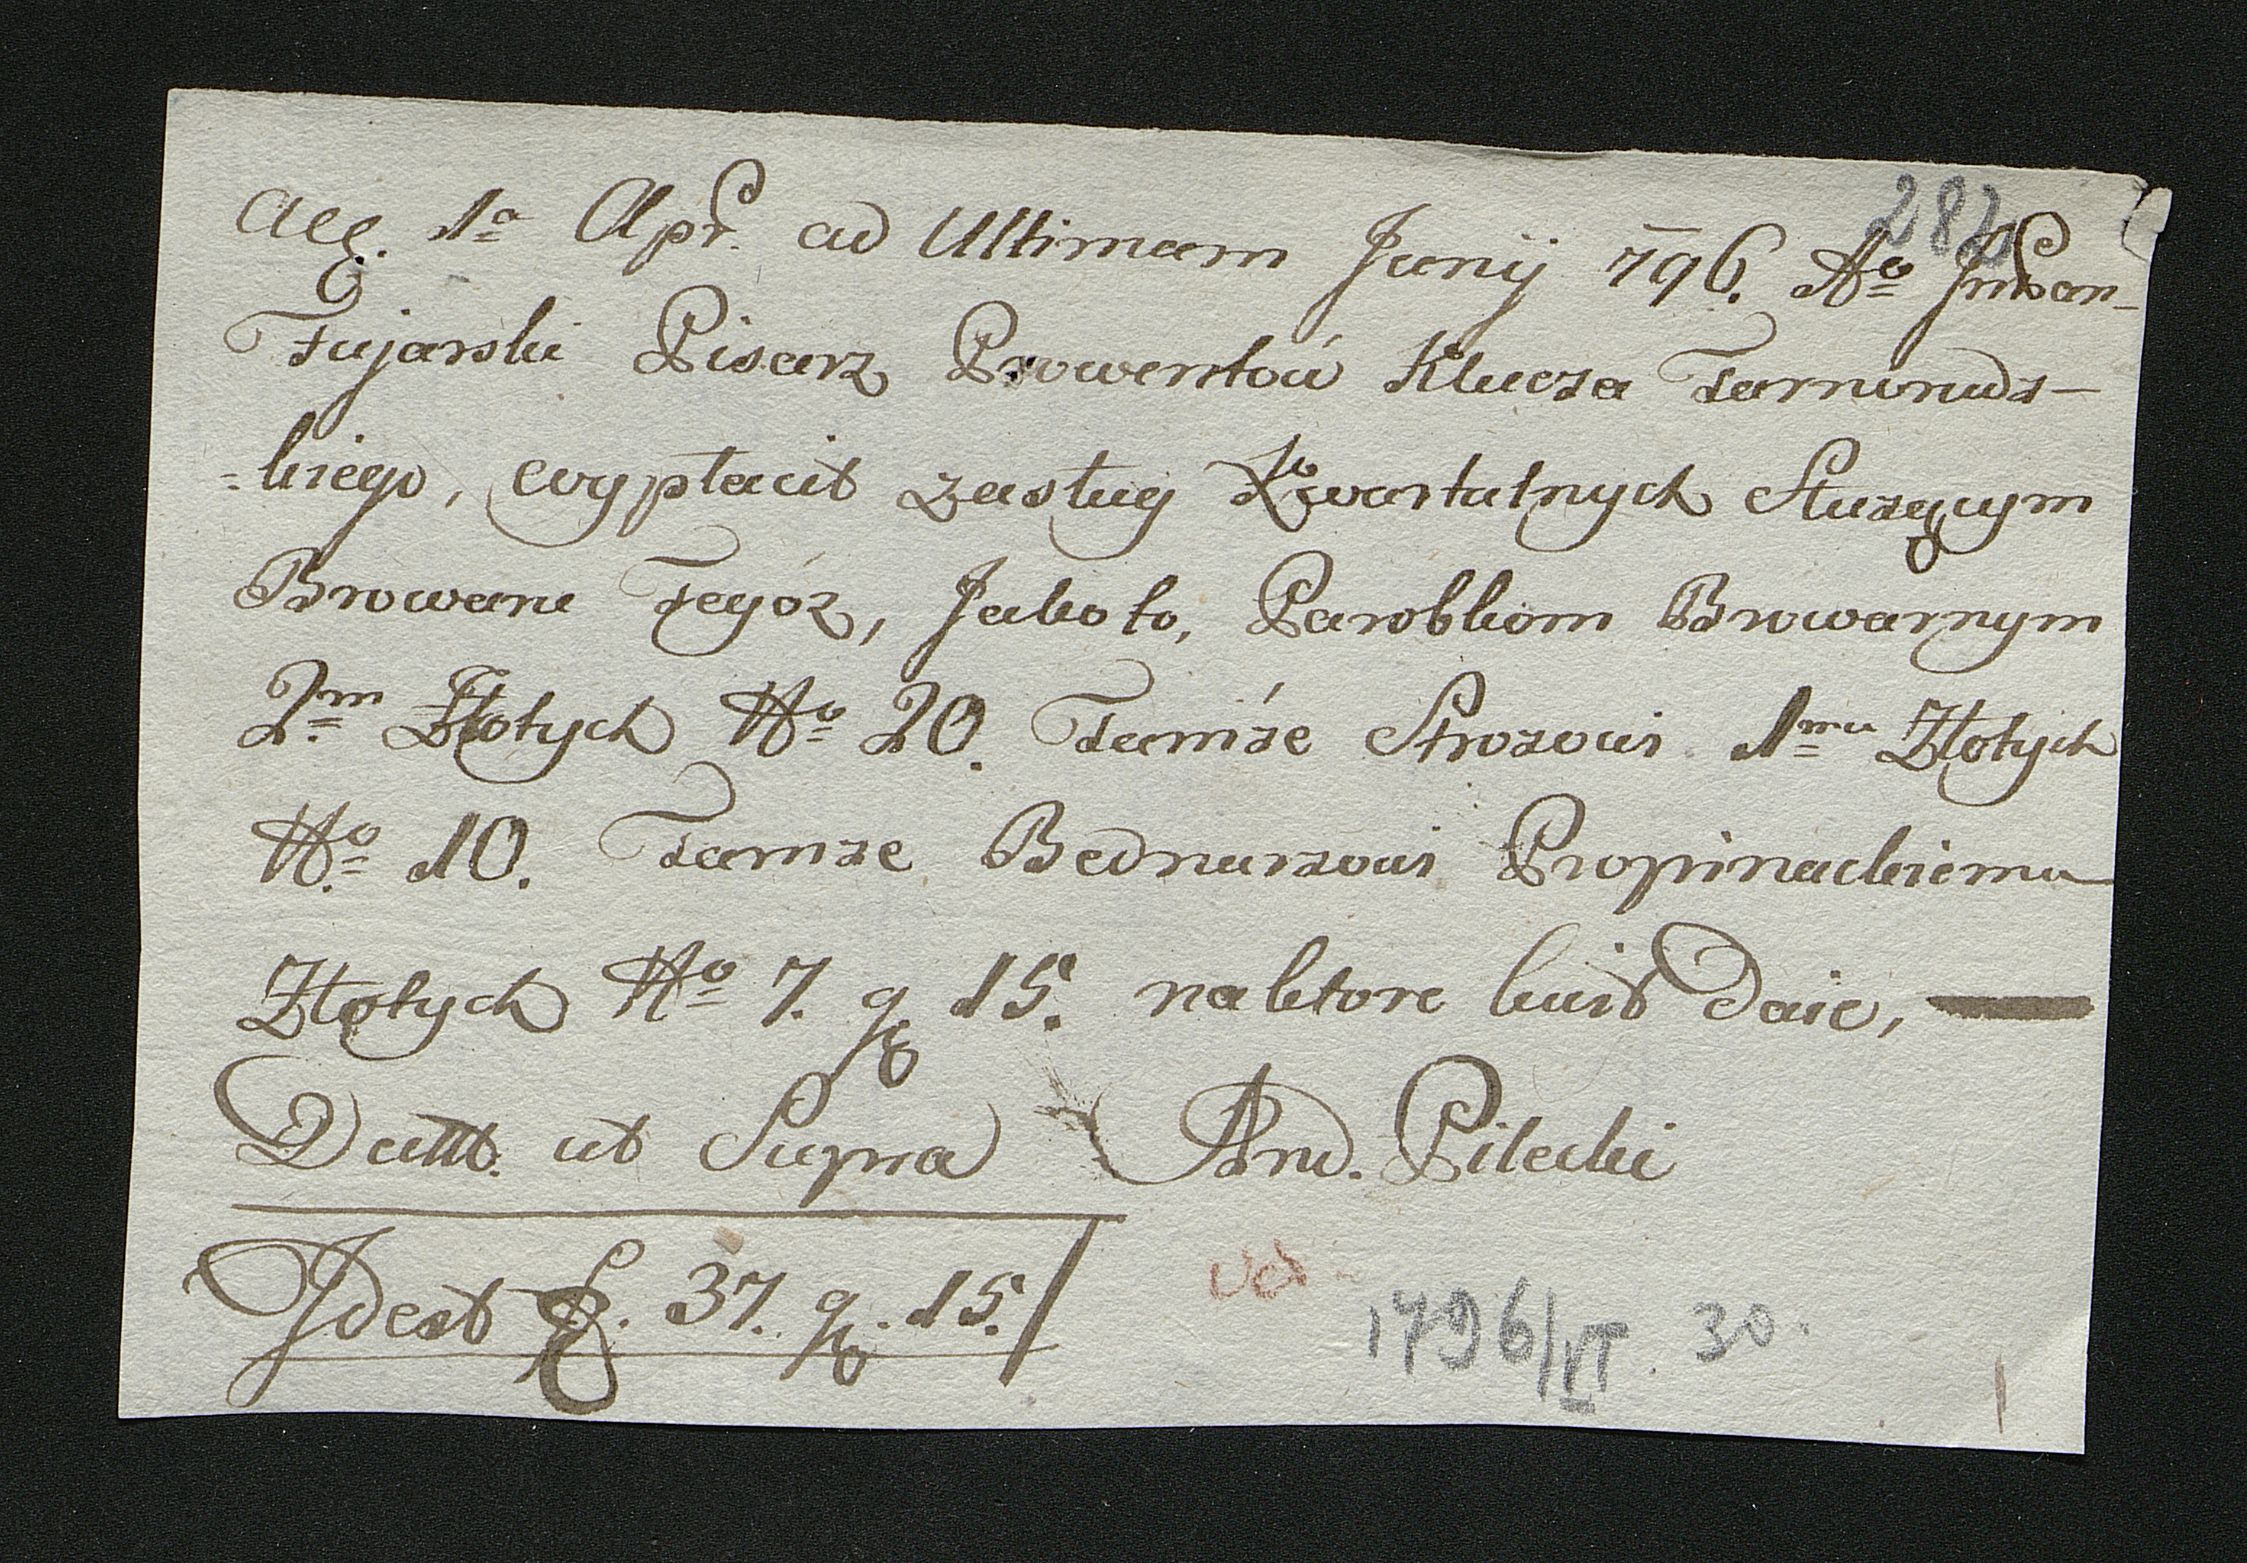 282
a 1ª Apr. ad Ultimam Junij 796. Aº
Fujarski Pisarz Prowentów Klucza Tarnoruds-
=kiego, wypłacił zasług Kwartalnych Służącym
Browaru Tegoż, Jako to, Parobkom Browarnym
2m Złotych Nº 20. Tamże Strożowi 1mu Złotych
Nº 10. Tamże Bednarzowi Propinackiemu
Złotych Nº 7. g 15. na ktore kwit Daie,
Datt. ut Supra And. Pilecki
Idest f. 37. g. 15.
1796/VI. 30.